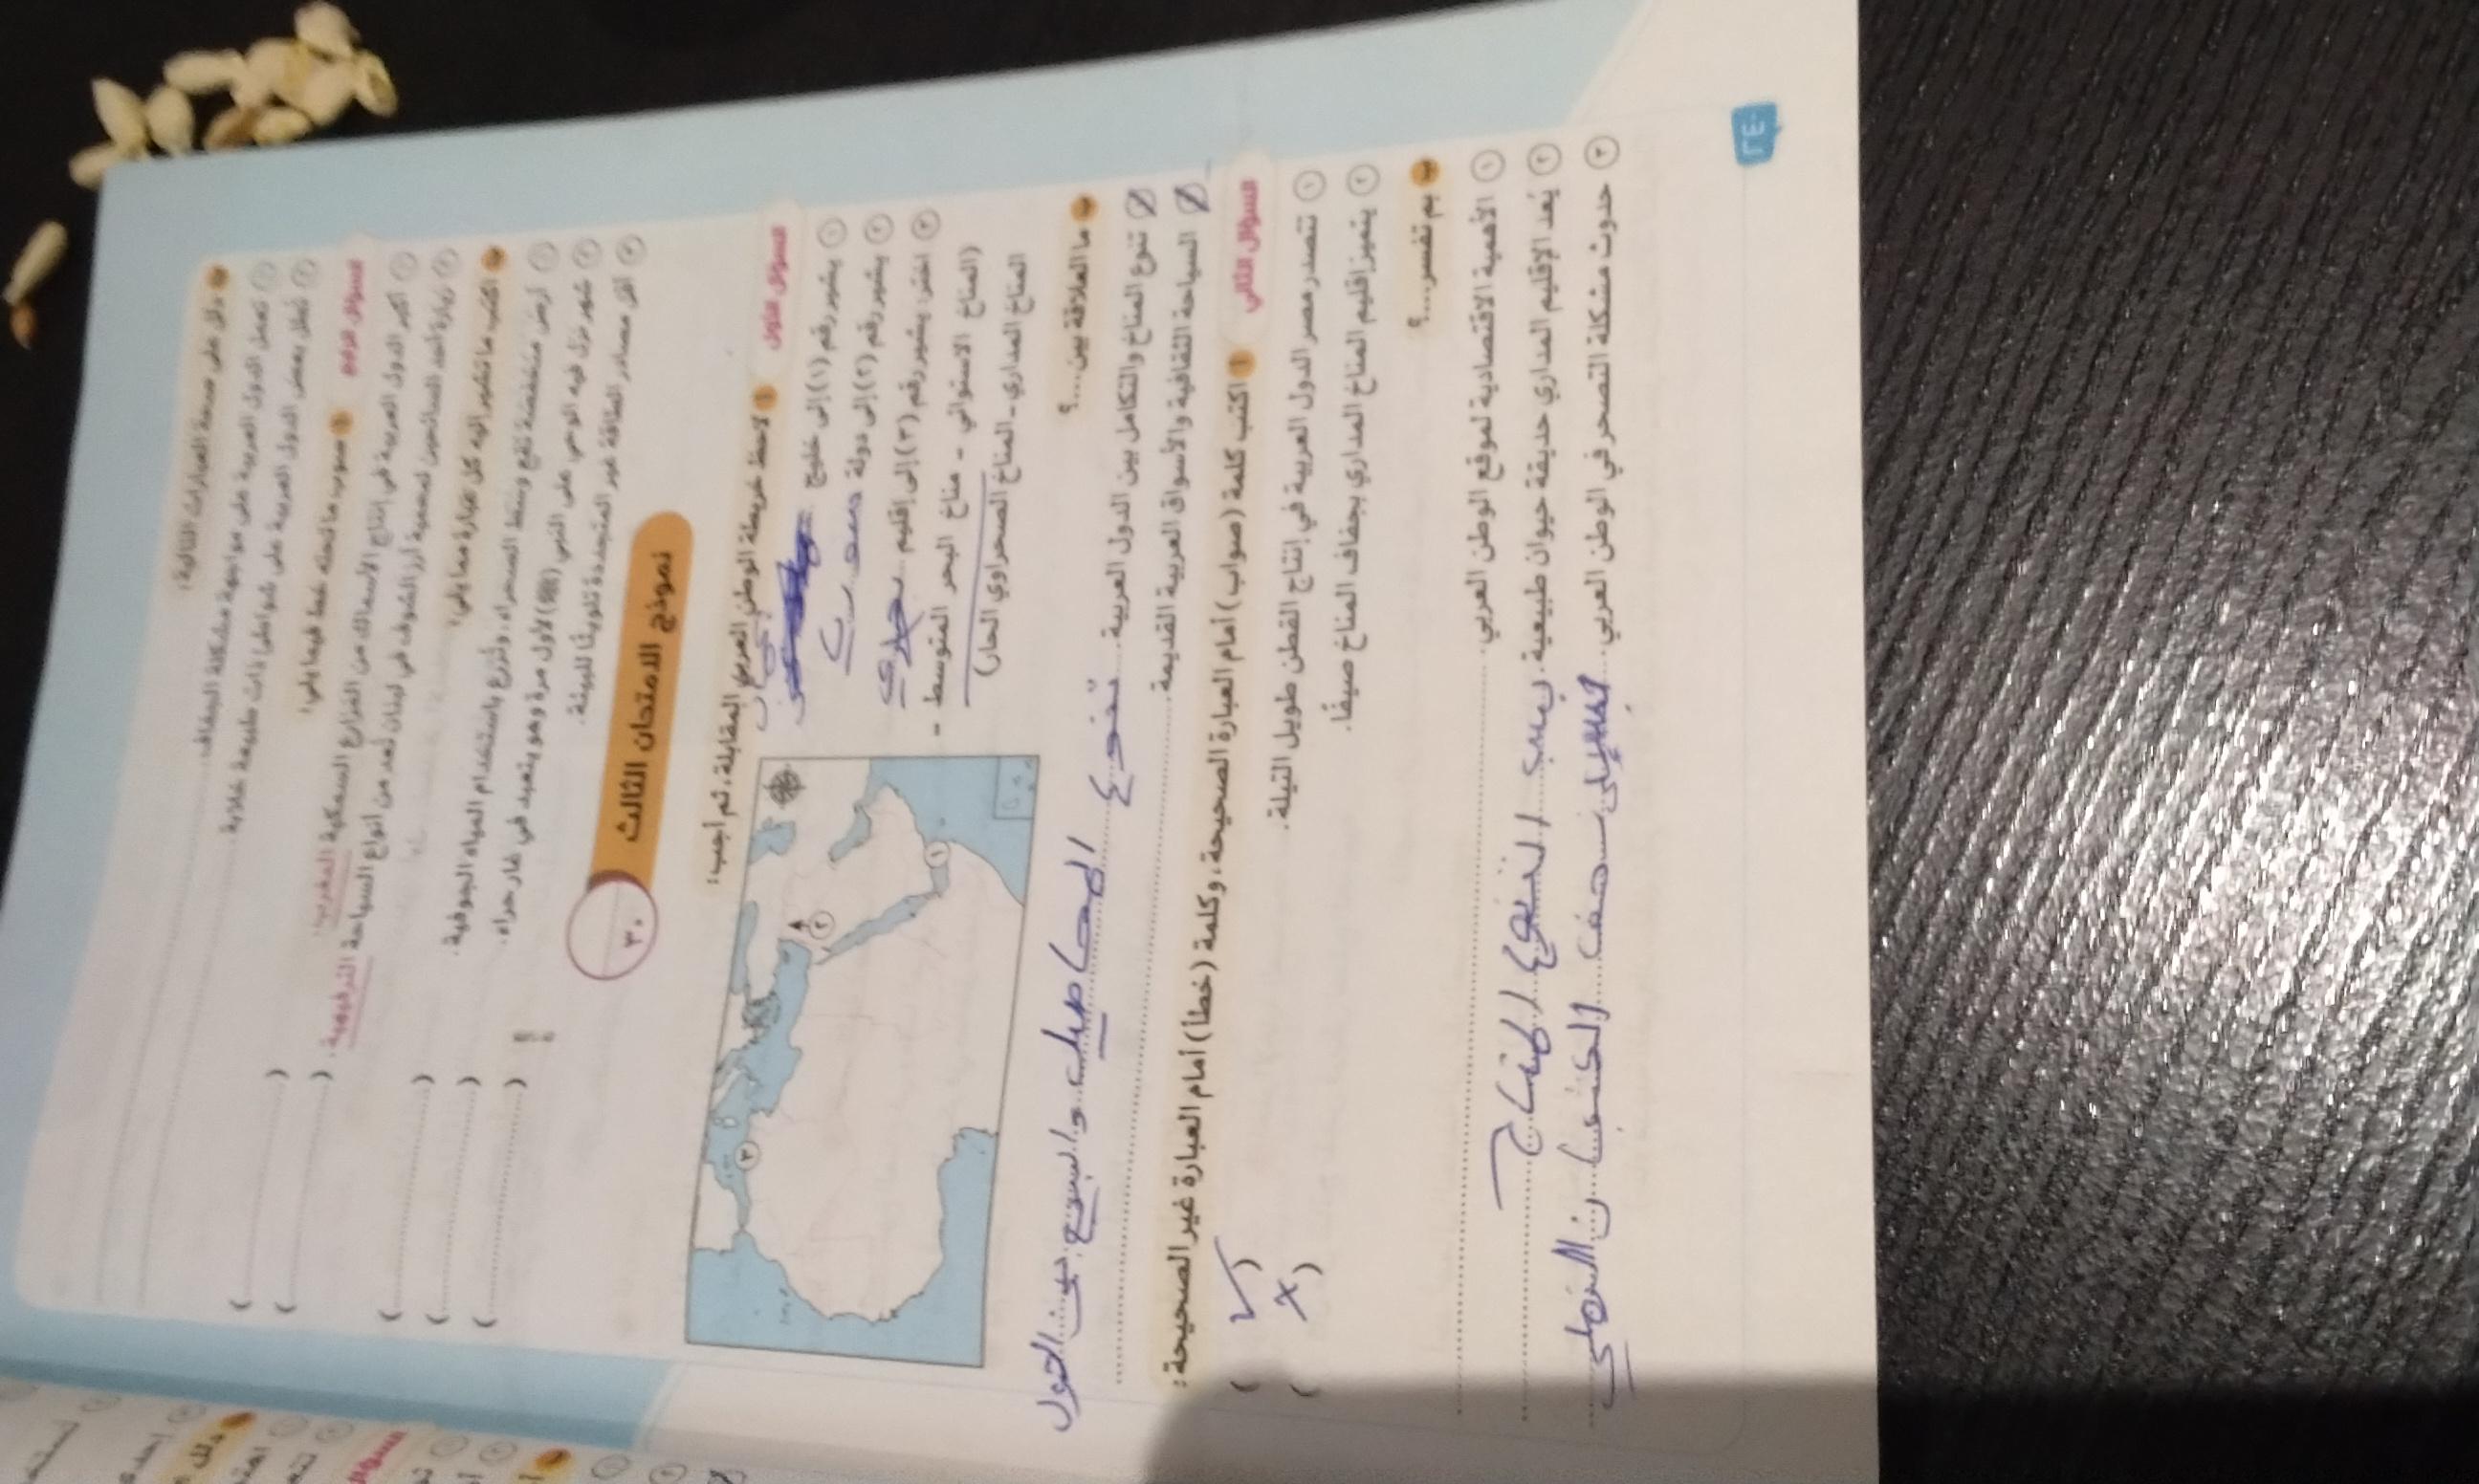 دلل على صحة العبارات التالية:
١ تعمل الدول العربية على مواجهة مشكلة الجفاف.
٢ تُطل بعض الدول العربية على شواطئ ذات طبيعة خلابة.
السؤال الرابع
أ صوب ما تحته خط فيما يلي:
١ أكبر الدول العربية في إنتاج الأسماك من المزارع السمكية المغرب. ( )
٢ زيارة أحد السائحين لمحمية أرز الشوف في لبنان تُعد من أنواع السياحة الترفيهية. ( )
ب اكتب ما تشير إليه كل عبارة مما يلي:
١ أرض منخفضة تقع وسط الصحراء، وتُزرع باستخدام المياه الجوفية. ( )
٢ شهر نزل فيه الوحي على النبي (ﷺ) لأول مرة وهو يتعبد في غار حراء. ( )
٣ أقل مصادر الطاقة غير المتجددة تلويثًا للبيئة. ( )
نموذج الامتحان الثالث
٣٠
السؤال الأول
أ لاحظ خريطة الوطن العربي المقابلة، ثم أجب:
١ يشير رقم (١) إلى خليج
٢ يشير رقم (٢) إلى دولة
٣ اختر: يشير رقم (٣) إلى إقليم
(المناخ الاستوائي - مناخ البحر المتوسط -
المناخ المداري - المناخ الصحراوي الحار)
١
٢
٣
ب ما العلاقة بين...؟
تنوع المناخ والتكامل بين الدول العربية. تنوع المحاصيل
السياحة الثقافية والأسواق العربية القديمة.
السؤال الثاني
أ اكتب كلمة (صواب) أمام العبارة الصحيحة، وكلمة (خطأ) أمام العبارة غير الصحيحة:
١ تتصدر مصر الدول العربية في إنتاج القطن طويل التيلة. ( ✓ )
٢ يتميز إقليم المناخ المداري بجفاف المناخ صيفًا. ( × )
ب بم تفسر...؟
١ الأهمية الاقتصادية لموقع الوطن العربي.
٢ يُعد الإقليم المداري حديقة حيوان طبيعية. بسبب التنوع المناخ
٣ حدوث مشكلة التصحر في الوطن العربي.
٢٤٠